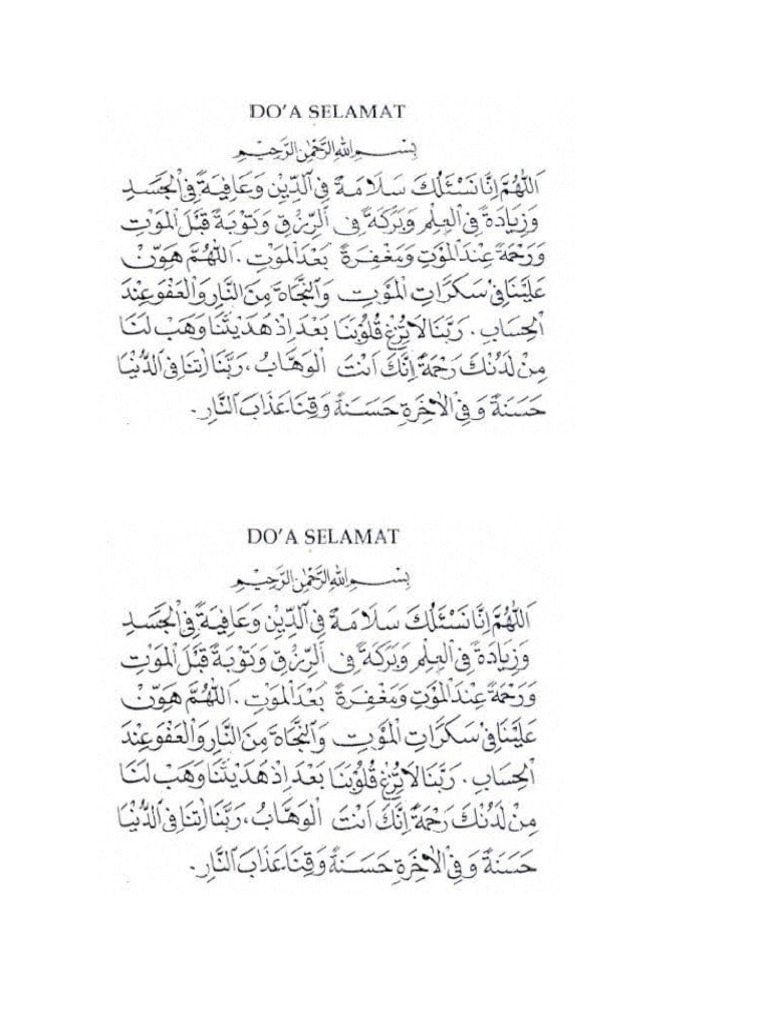 DO'A SELAMAT
بِسْمِ اللهِ الرَّحْمٰنِ الرَّحِيْمِ
اَللّٰهُمَّ اِنَّا نَسْئَلُكَ سَلَامَةً فِى الدِّيْنِ وَعَافِيَةً فِى الْجَسَدِ
وَزِيَادَةً فِى الْعِلْمِ وَبَرَكَةً فِى الرِّزْقِ وَتَوْبَةً قَبْلَ الْمَوْتِ
وَرَحْمَةً عِنْدَ الْمَوْتِ وَمَغْفِرَةً بَعْدَ الْمَوْتِ. اَللّٰهُمَّ هَوِّنْ
عَلَيْنَا فِىْ سَكَرَاتِ الْمَوْتِ وَالنَّجَاةَ مِنَ النَّارِ وَالْعَفْوَ عِنْدَ
الْحِسَابِ. رَبَّنَا لَا تُزِغْ قُلُوْبَنَا بَعْدَ اِذْ هَدَيْتَنَا وَهَبْ لَنَا
مِنْ لَدُنْكَ رَحْمَةً اِنَّكَ اَنْتَ الْوَهَّابُ، رَبَّنَا اٰتِنَا فِى الدُّنْيَا
حَسَنَةً وَفِى الْاٰخِرَةِ حَسَنَةً وَقِنَا عَذَابَ النَّارِ.
DO'A SELAMAT
بِسْمِ اللهِ الرَّحْمٰنِ الرَّحِيْمِ
اَللّٰهُمَّ اِنَّا نَسْئَلُكَ سَلَامَةً فِى الدِّيْنِ وَعَافِيَةً فِى الْجَسَدِ
وَزِيَادَةً فِى الْعِلْمِ وَبَرَكَةً فِى الرِّزْقِ وَتَوْبَةً قَبْلَ الْمَوْتِ
وَرَحْمَةً عِنْدَ الْمَوْتِ وَمَغْفِرَةً بَعْدَ الْمَوْتِ. اَللّٰهُمَّ هَوِّنْ
عَلَيْنَا فِىْ سَكَرَاتِ الْمَوْتِ وَالنَّجَاةَ مِنَ النَّارِ وَالْعَفْوَ عِنْدَ
الْحِسَابِ. رَبَّنَا لَا تُزِغْ قُلُوْبَنَا بَعْدَ اِذْ هَدَيْتَنَا وَهَبْ لَنَا
مِنْ لَدُنْكَ رَحْمَةً اِنَّكَ اَنْتَ الْوَهَّابُ، رَبَّنَا اٰتِنَا فِى الدُّنْيَا
حَسَنَةً وَفِى الْاٰخِرَةِ حَسَنَةً وَقِنَا عَذَابَ النَّارِ.